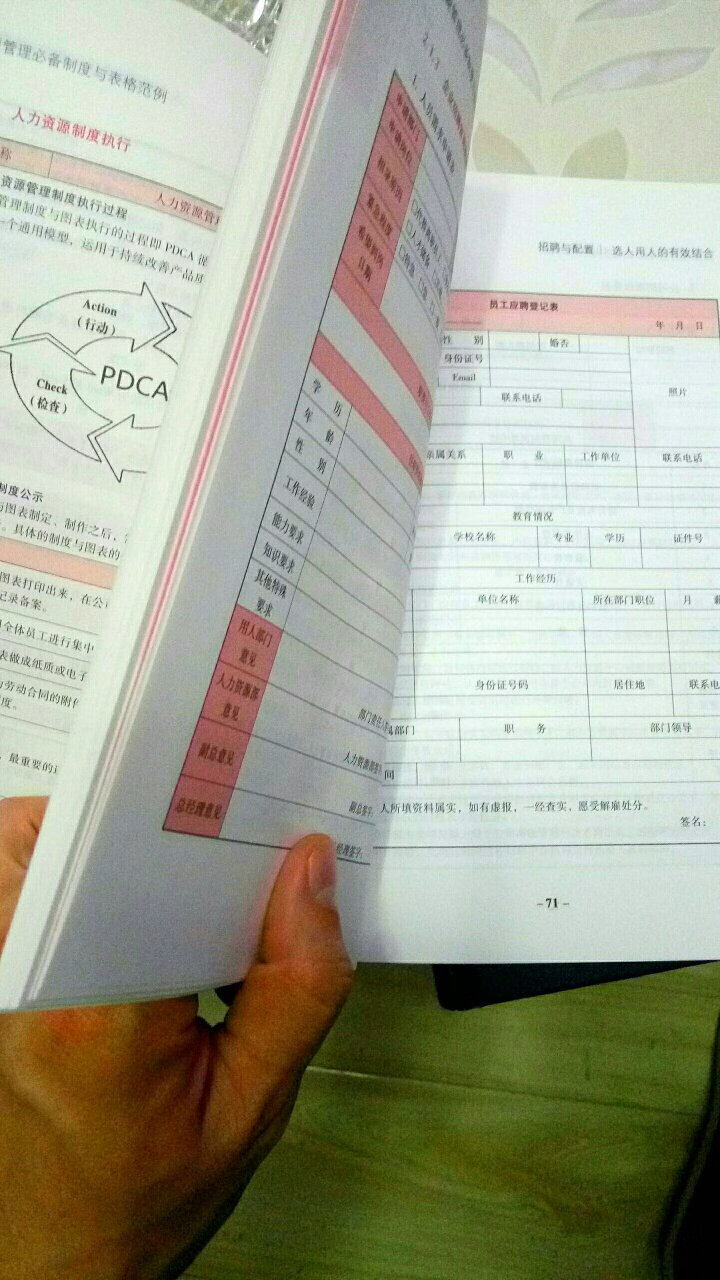 管理必备制度与表格范例
人力资源制度执行
称
人力资源管
资源管理制度执行过程
管理制度与图表执行的过程即 PDCA 循
一个通用模型，运用于持续改善产品质
Action
（行动）
PDCA
Check
（检查）
制度公示
与图表制定、制作之后，
。具体的制度与图表的
图表打印出来，在公
记录备案。
全体员工进行集中
表做成纸质或电子
为劳动合同的附件
度。
，最重要的
学 历
年 龄
性 别
工作经验
能力要求
知识要求
其他特殊
要求
用人部门
意见
部门责任人
人力资源部
意见
人力资源部签字
副总意见
副总签字:
总经理意见
经理签字:
招聘与配置 | 选人用人的有效结合
员工应聘登记表
年 月 日
性 别 婚否
身份证号
Email
照片
联系电话
亲属关系 职 业 工作单位 联系电话
教育情况
学校名称 专业 学历 证件号
工作经历
单位名称 所在部门职位 月 薪
身份证号码 居住地 联系电
部门 职 务 部门领导
间
人所填资料属实，如有虚报，一经查实，愿受解雇处分。
签名：
–71–